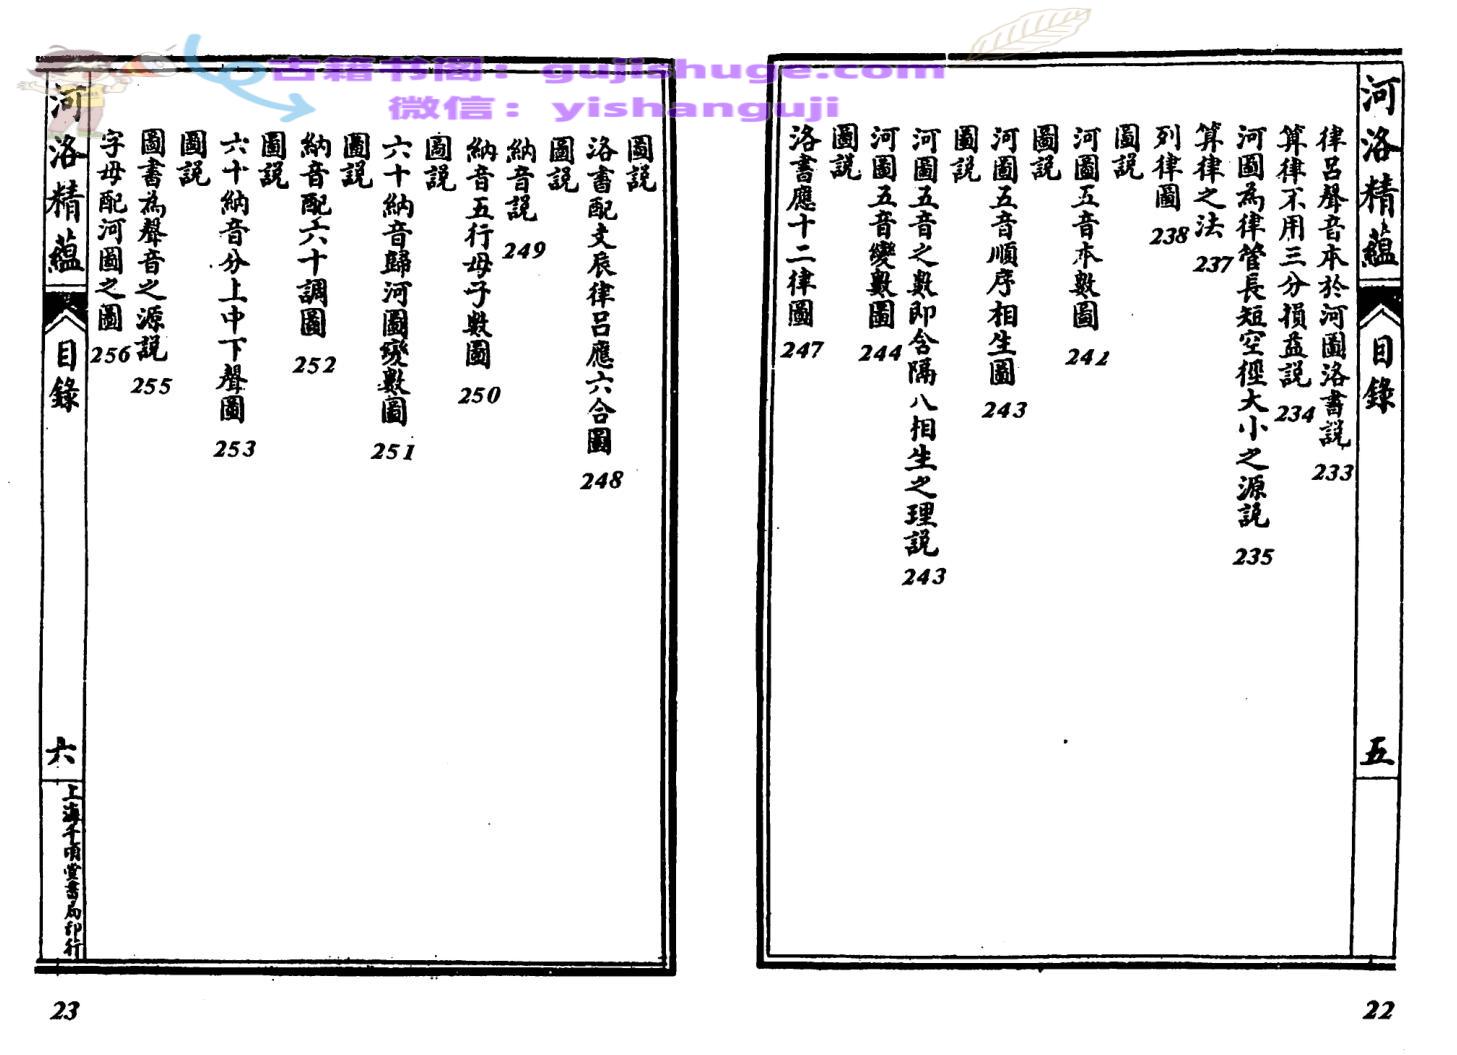 古籍书阁：gujishuge.com
微信：yishanguji
河洛精蘊
目錄
五
律呂聲音本於河圖洛書說 233
算律不用三分損益說 234
河圖為律管長短空徑大小之源說 235
算律之法 237
列律圖 238
圖說
河圖五音本數圖 242
圖說
河圖五音順序相生圖 243
圖說
河圖五音之數即含隔八相生之理說 243
河圖五音變數圖 244
圖說
洛書應十二律圖 247
22
圖說
洛書配支辰律呂應六合圖 248
圖說
納音說 249
納音五行母子數圖 250
圖說
六十納音歸河圖變數圖 251
圖說
納音配六十調圖 252
圖說
六十納音分上中下聲圖 253
圖說
圖書為聲音之源說 255
字母配河圖之圖 256
河洛精蘊
目錄
六
上海千頃堂書局印行
23